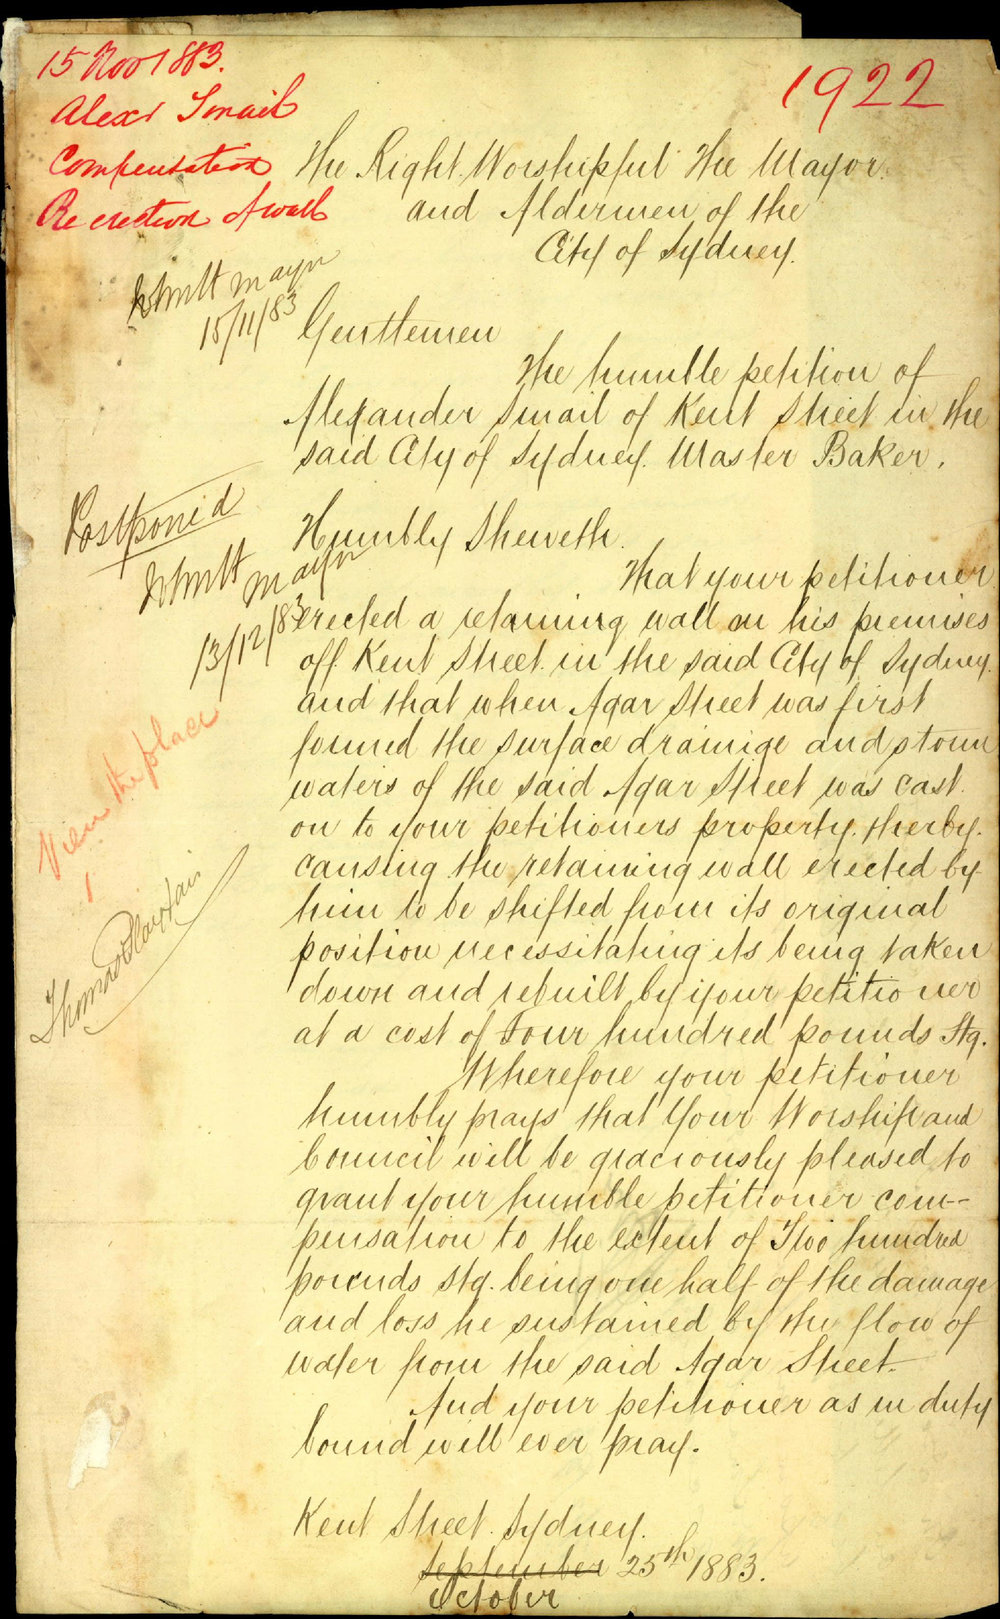 15 Nov 1883.
Alexr Smail
Compensation
Re erection of wall
1922
The Right Worshipful The Mayor
and Aldermen of the
City of Sydney.
Mayor
15/11/83
Gentlemen
The humble petition of
Alexander Smail of Kent Street in the
said City of Sydney. Master Baker.
Postponed
Humbly Sheweth.
Mayor
13/12/83
That your petitioner
erected a retaining wall on his premises
off Kent Street in the said City of Sydney.
and that when Agar Street was first
formed the surface drainige and storm
waters of the said Agar Street was cast
on to your petitioners property. therby.
causing the retaining wall erected by
him to be shifted from its original
position necessitating its being taken
down and rebuilt by your petitioner
at a cost of Four hundred pounds Stg.
View the place
Thomas Playfair
Wherefore your petitioner
humbly prays that Your Worship and
Council will be graciously pleased to
grant your humble petitioner com-
pensation to the extent of Two hundred
pounds stg. being one half of the damage
and loss he sustained by the flow of
water from the said Agar Street.
And your petitioner as in duty
bound will ever pray.
Kent Street. Sydney.
September 25th 1883.
October